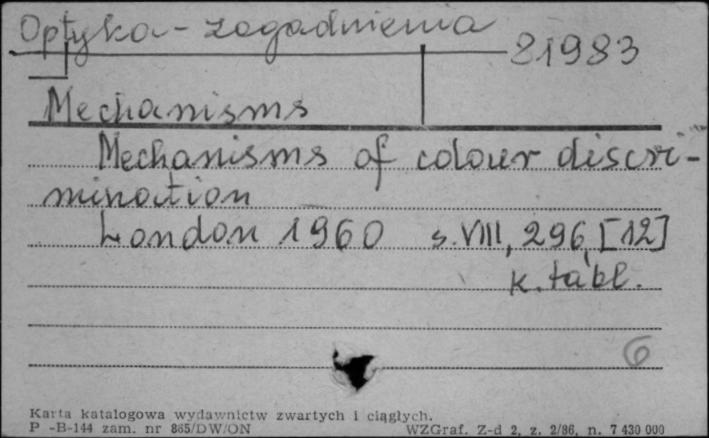 Optyka - zagadnienia
81983
Mechanisms
Mechanisms of colour discri-
mination
London 1960 s. VIII, 296, [12]
k. tabl.
6
Karta katalogowa wydawnictw zwartych i ciągłych.
P -B-144 zam. nr 865/DW/ON WZGraf. Z-d 2, z. 2/86, n. 7 430 000